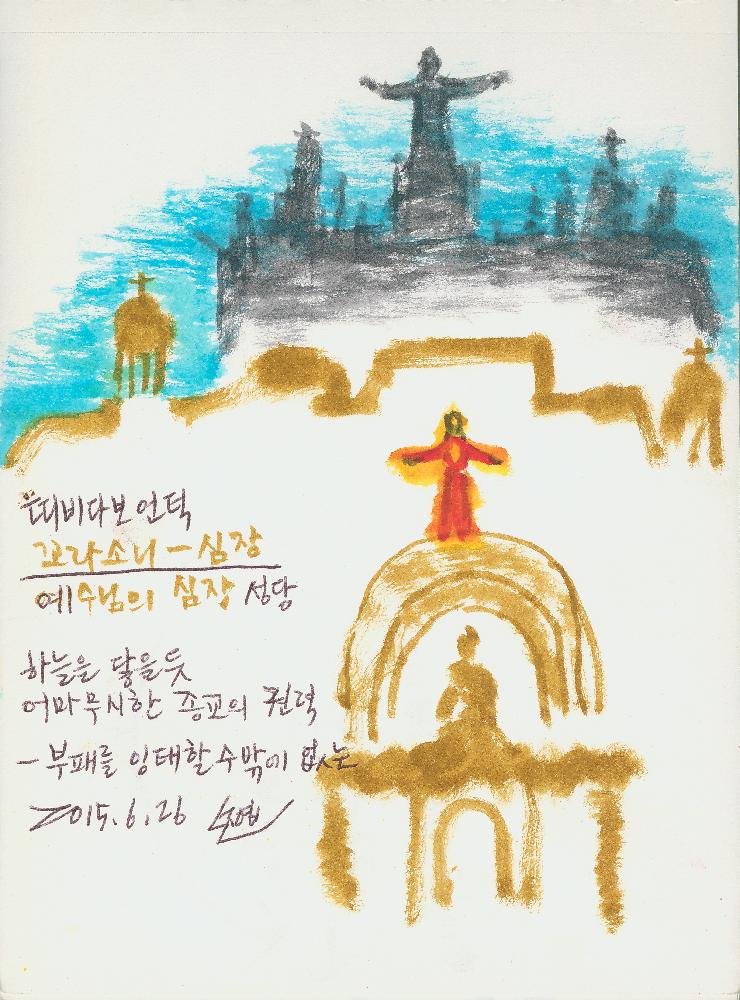 띠비다보 언덕
꼬라소니 - 심장
예수님의 심장 성당
하늘을 닿을듯
어마무시한 종교의 권력
- 부패를 잉태할수밖에 없는
2015.6.26